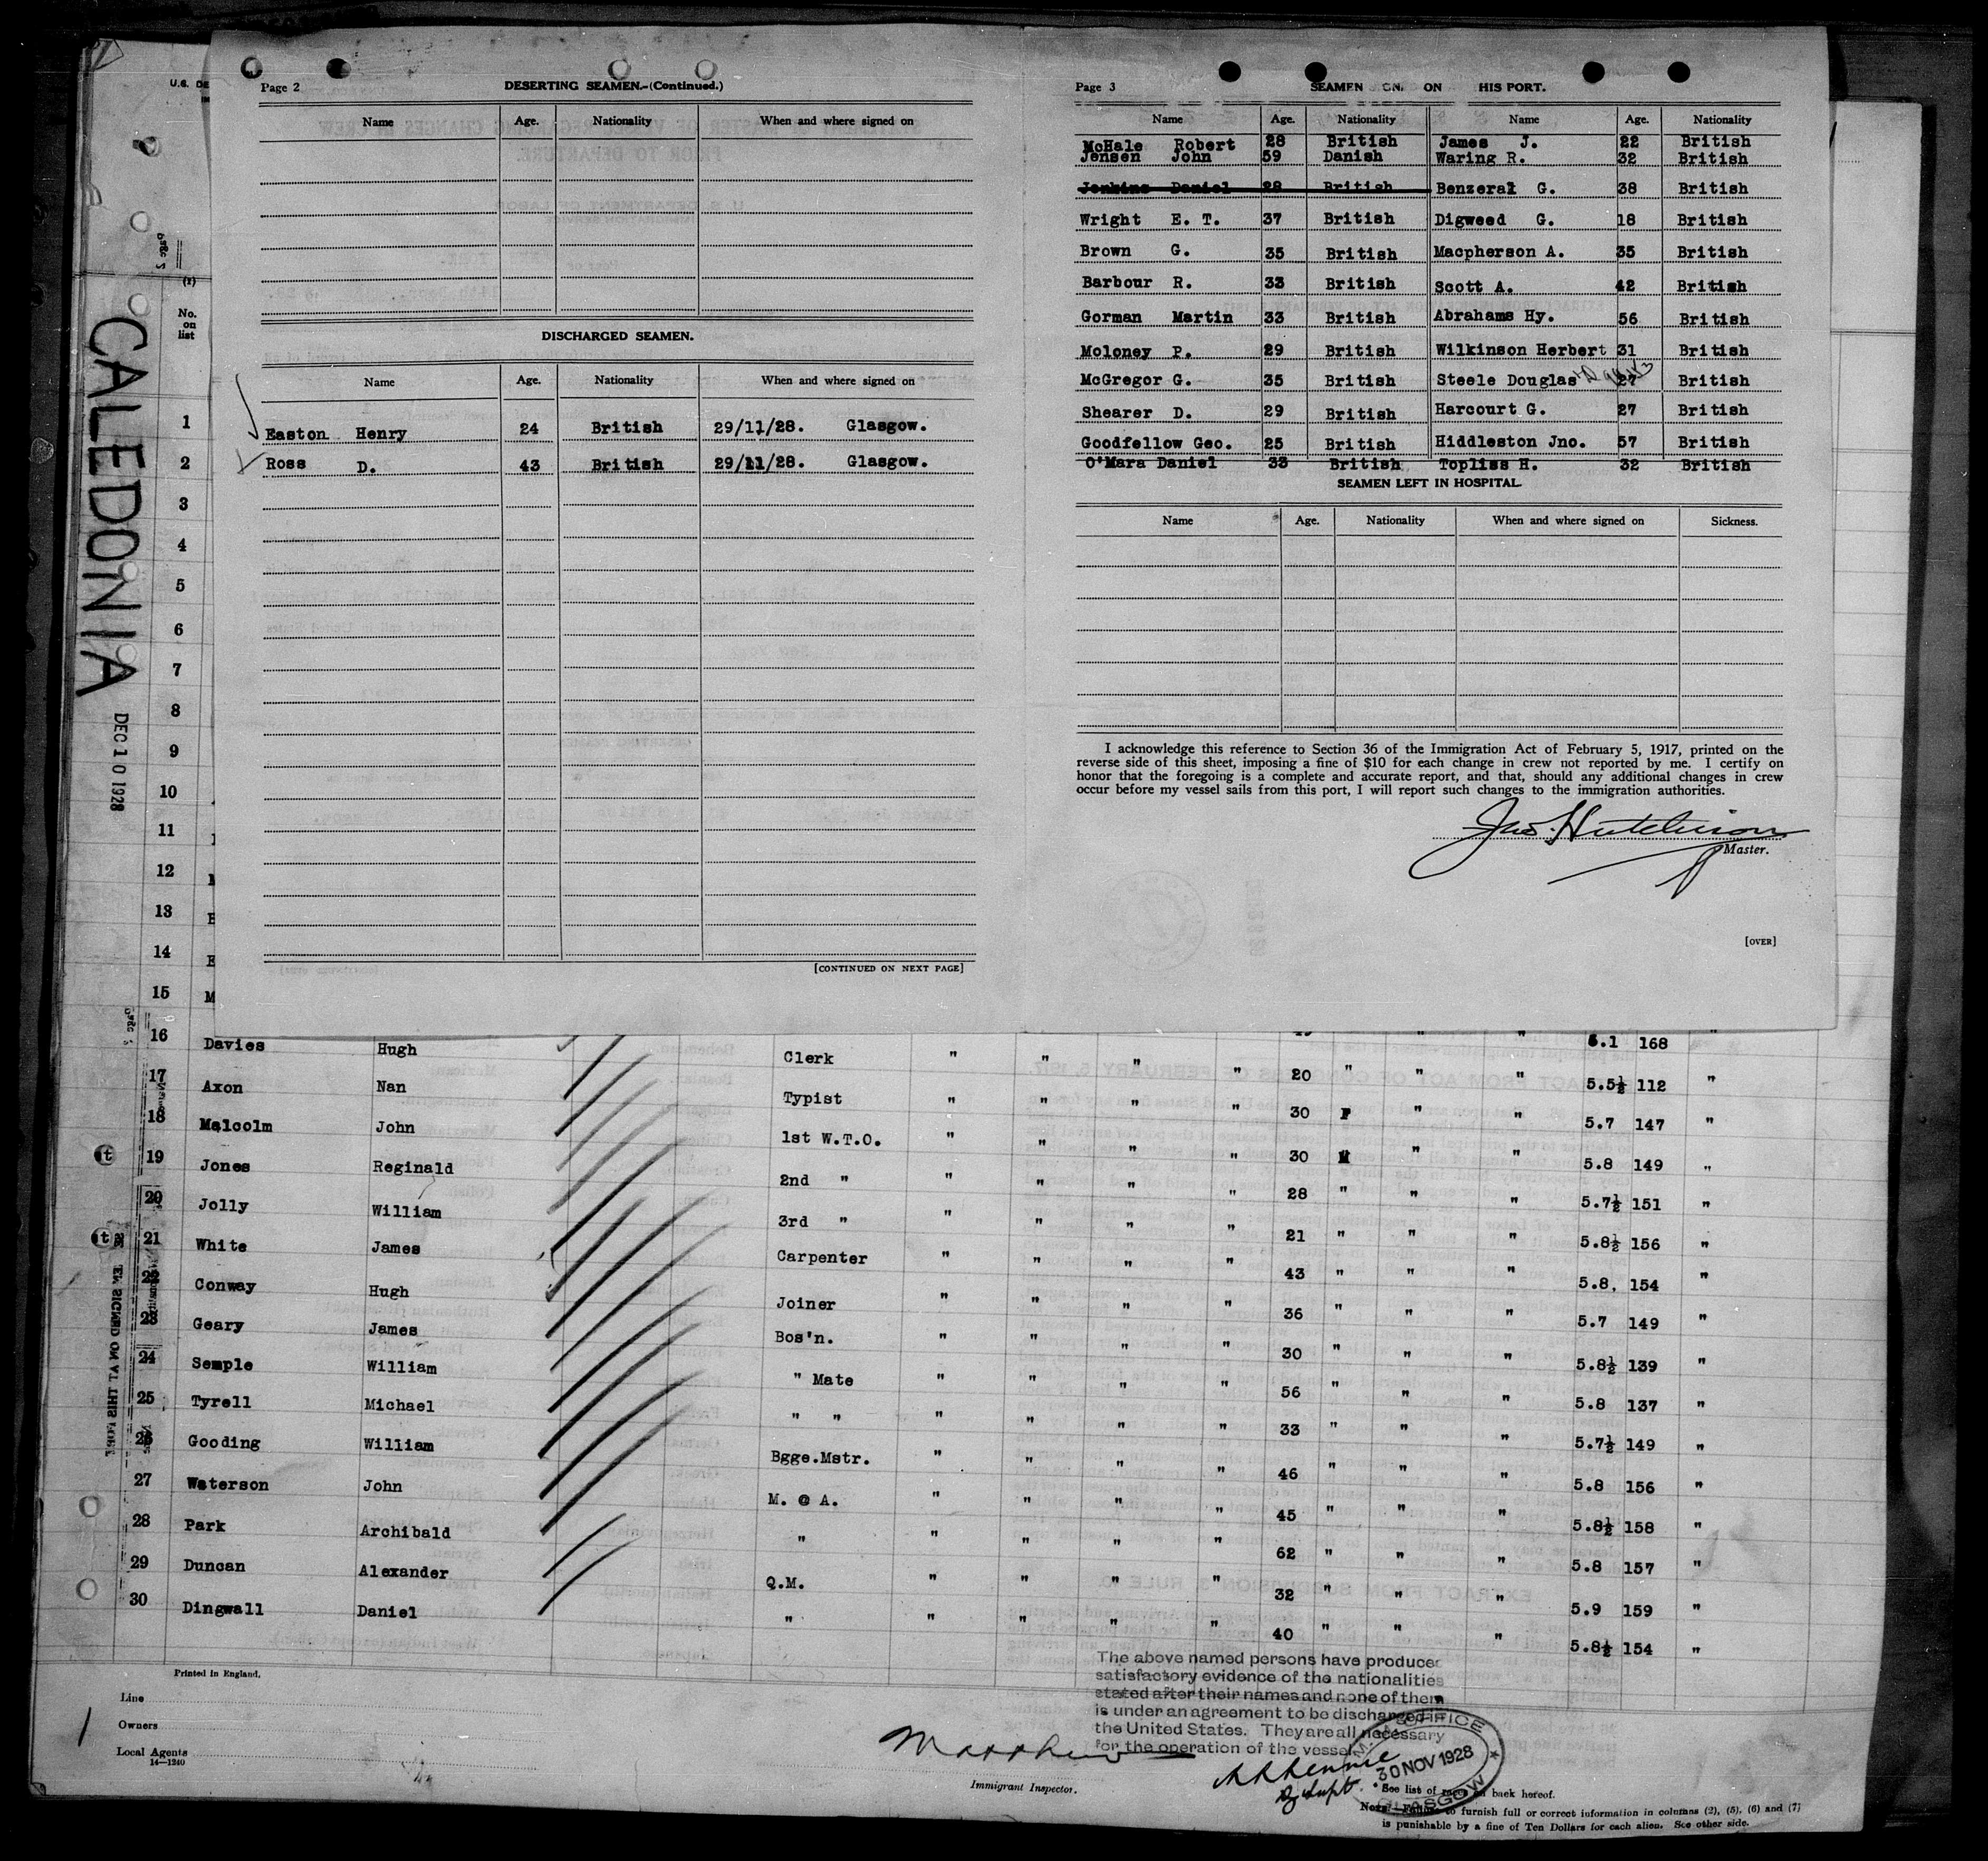 Page 2
DESERTING SEAMEN.-(Continued.)
Name Age. Nationality When and where signed on
DISCHARGED SEAMEN.
Name Age. Nationality When and where signed on
Easton Henry 24 British 29/11/28. Glasgow.
Ross D. 43 British 29/11/28. Glasgow.
[CONTINUED ON NEXT PAGE]
Page 3
SEAMEN ON HIS PORT.
Name Age. Nationality Name Age. Nationality
McHale Robert 28 British James J. 22 British
Jensen John 59 Danish Waring R. 32 British
Jenkins Daniel 28 British Benzeral G. 38 British
Wright E. T. 37 British Digweed G. 18 British
Brown G. 35 British Macpherson A. 35 British
Barbour R. 33 British Scott A. 42 British
Gorman Martin 33 British Abrahams Hy. 56 British
Moloney P. 29 British Wilkinson Herbert 31 British
McGregor G. 35 British Steele Douglas 27 British
Shearer D. 29 British Harcourt G. 27 British
Goodfellow Geo. 25 British Hiddleston Jno. 57 British
O'Mara Daniel 33 British Topliss H. 32 British
SEAMEN LEFT IN HOSPITAL.
Name Age. Nationality When and where signed on Sickness.
I acknowledge this reference to Section 36 of the Immigration Act of February 5, 1917, printed on the
reverse side of this sheet, imposing a fine of $10 for each change in crew not reported by me. I certify on
honor that the foregoing is a complete and accurate report, and that, should any additional changes in crew
occur before my vessel sails from this port, I will report such changes to the immigration authorities.
Jno. Hutchison
Master.
[OVER]
U.S. DE
(1)
No.
on
list
CALEDONIA
DEC 10 1928
1
2
3
4
5
6
7
8
9
10
11
12
13
14
15
16 Davies Hugh Clerk " " " " 20 " " " 5.1 168 "
17 Axon Nan Typist " " " " 30 F " " 5.5½ 112 "
18 Malcolm John 1st W.T.O. " " " " 30 M " " 5.7 147 "
19 Jones Reginald 2nd " " " " " 28 " " " 5.8 149 "
20 Jolly William 3rd " " " " " 21 " " " 5.7½ 151 "
21 White James Carpenter " " " " 43 " " " 5.8½ 156 "
22 Conway Hugh Joiner " " " " 36 " " " 5.8, 154 "
23 Geary James Bos'n. " " " " 30 " " " 5.7 149 "
24 Semple William " Mate " " " " 56 " " " 5.8½ 139 "
25 Tyrell Michael " " " " " " 33 " " " 5.8 137 "
26 Gooding William Bgge.Mstr. " " " " 46 " " " 5.7½ 149 "
27 Waterson John M. @ A. " " " " 45 " " " 5.8 156 "
28 Park Archibald " " " " " 62 " " " 5.8½ 158 "
29 Duncan Alexander Q.M. " " " " 32 " " " 5.8 157 "
30 Dingwall Daniel " " " " " 40 " " " 5.9 159 "
5.8½ 154 "
Printed in England.
Line
Owners
Local Agents
14—1240
Immigrant Inspector.
The above named persons have produced
satisfactory evidence of the nationalities
stated after their names and none of them
is under an agreement to be discharged in
the United States. They are all necessary
for the operation of the vessel.
OFFICE
30 NOV 1928
GLASGOW
*See list of races on back hereof.
NOTE.—Failure to furnish full or correct information in columns (2), (5), (6) and (7)
is punishable by a fine of Ten Dollars for each alien. See other side.